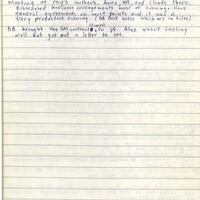 Meeting at Ray's with Ray, Anne, BB, and Claude there.
Discussed business arrangements most of evening. Have
general agreement on most points and it was a
very productive evening. (BB took notes which are in files)
BB brought the SM contract to VS. Alec wasn't feeling
well. But got out a letter to SM.